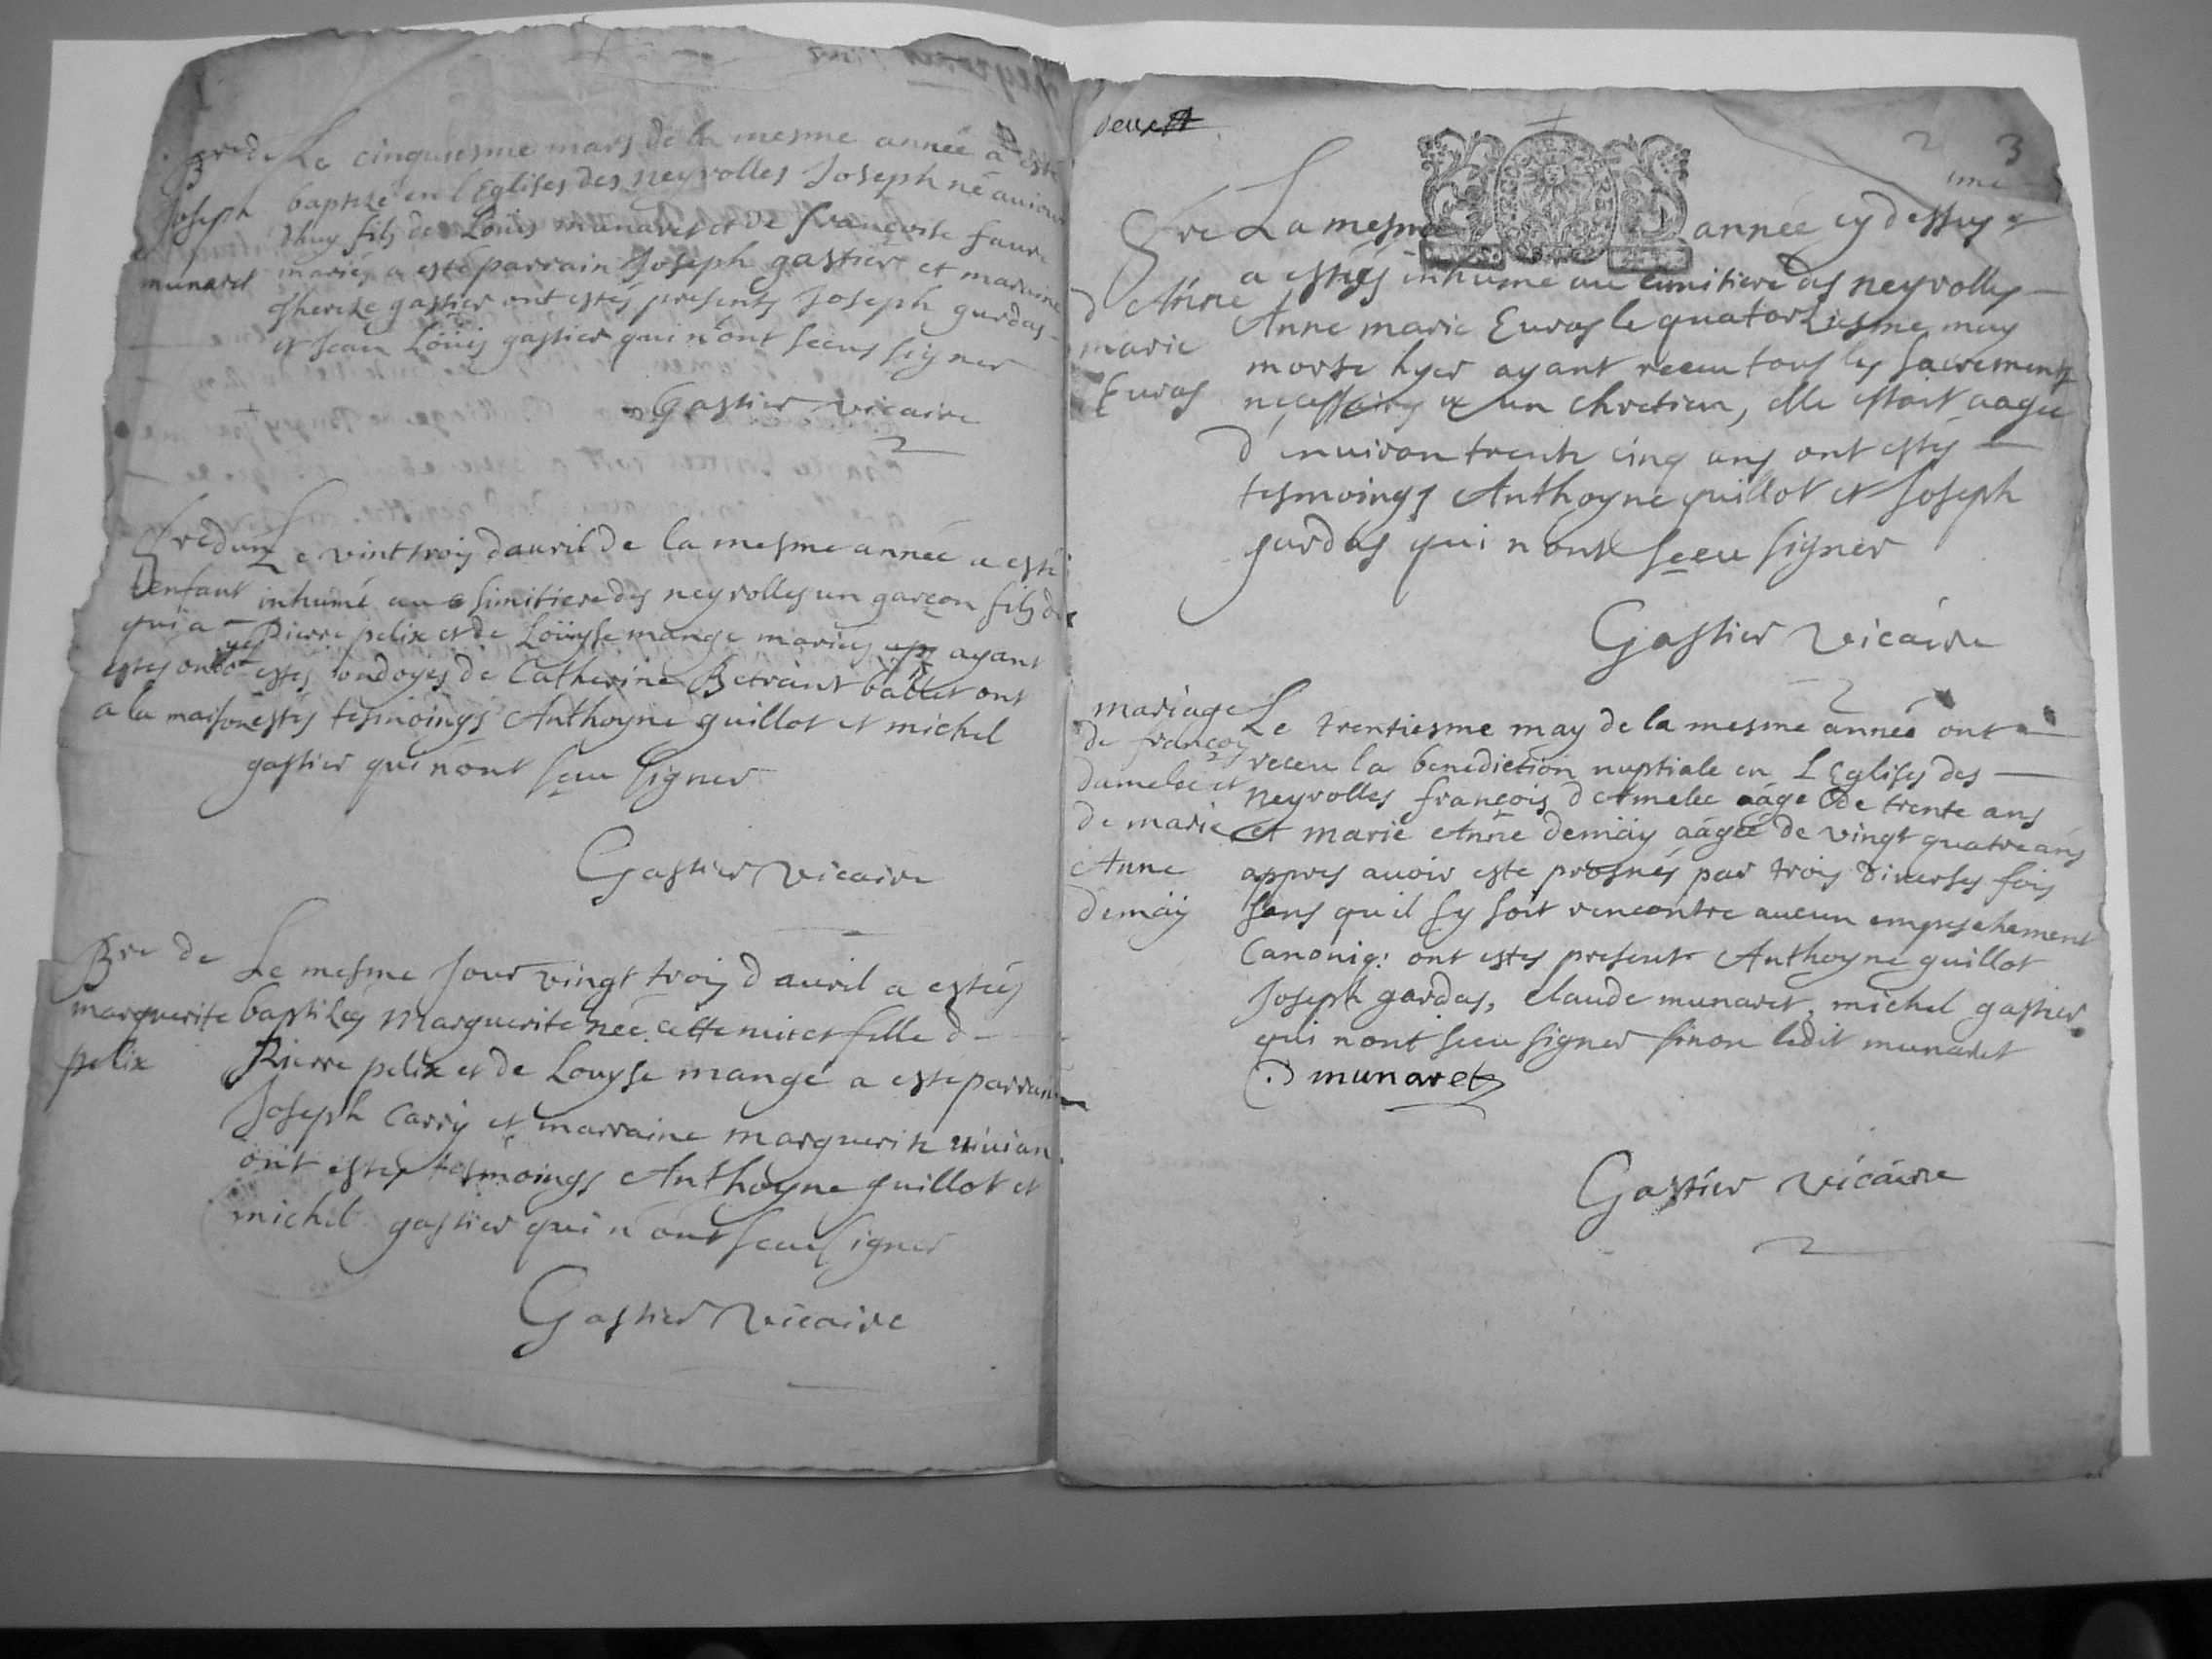 Bre de
Joseph
munaret
Le cinquiesme mars de la mesme année a esté
baptizé en l Eglises des neyrolles Joseph né aujour
dhuy fils de Louis munaret et de francoise faure
mariés a esté parrain Joseph gastier et maraine
therese gastier ont estés presents Joseph gurdas
et Jean Louis gastier qui n'ont sceus signer
Gastier vicaire
Sre dun
enfant
qui a
estes ondoyes
a la maison
Le vint trois d'auril de la mesme année a esté
inhumé au simitiere des neyrolles un garcon fils de
Pierre pelix et de Loüyse mange mariés ayant
estés ondoyés de Catherine Betraint ont
estés tesmoings Anthoyne guillot et michel
gastier qui n'ont sceu signer
Gastier vicaire
Bre de
marguerite
pelix
Le mesme Jour vingt trois d auril a estées
baptizées Marguerite née cette nuict fille d
Pierre pelix et de Louyse mange a este parrain
Joseph Carry et marraine marguerite vivian
ont estes tesmoings Anthoyne guillot et
michel gastier qui n'ont sceu signer
Gastier vicaire
2 3
Sre
d Anne
marie
Euras
La mesme année cy dessus
a estées inhumé au cimitiere des neyrolles
Anne marie Euras le quatorziesme may
morte hyer ayant receu tous les sacrements
necessaires a un chretien, elle estoit aagee
d'enuiron trente cinq ans ont estés
tesmoings Anthoyne guillot et Joseph
gurdas qui n ont sceu signer
Gastier vicaire
mariage
de françois
damelec et
de marie
Anne
demäy
Le trentiesme may de la mesme année ont
receu la benediction nuptiale en L Eglises des
neyrolles françois dAmelec aáge de trente ans
et marie Anne demäy aágée de vingt quatre ans
appres auoir este prosnés par trois diuerses fois
sans qu il sy soit rencontre aucun empeschement
Canoniq: ont estes present Anthoyne guillot
Joseph gardas, claude munaret, michel gastier
qui n ont sceu signer sinon ledit munaret
munaret
Gastier vicaire